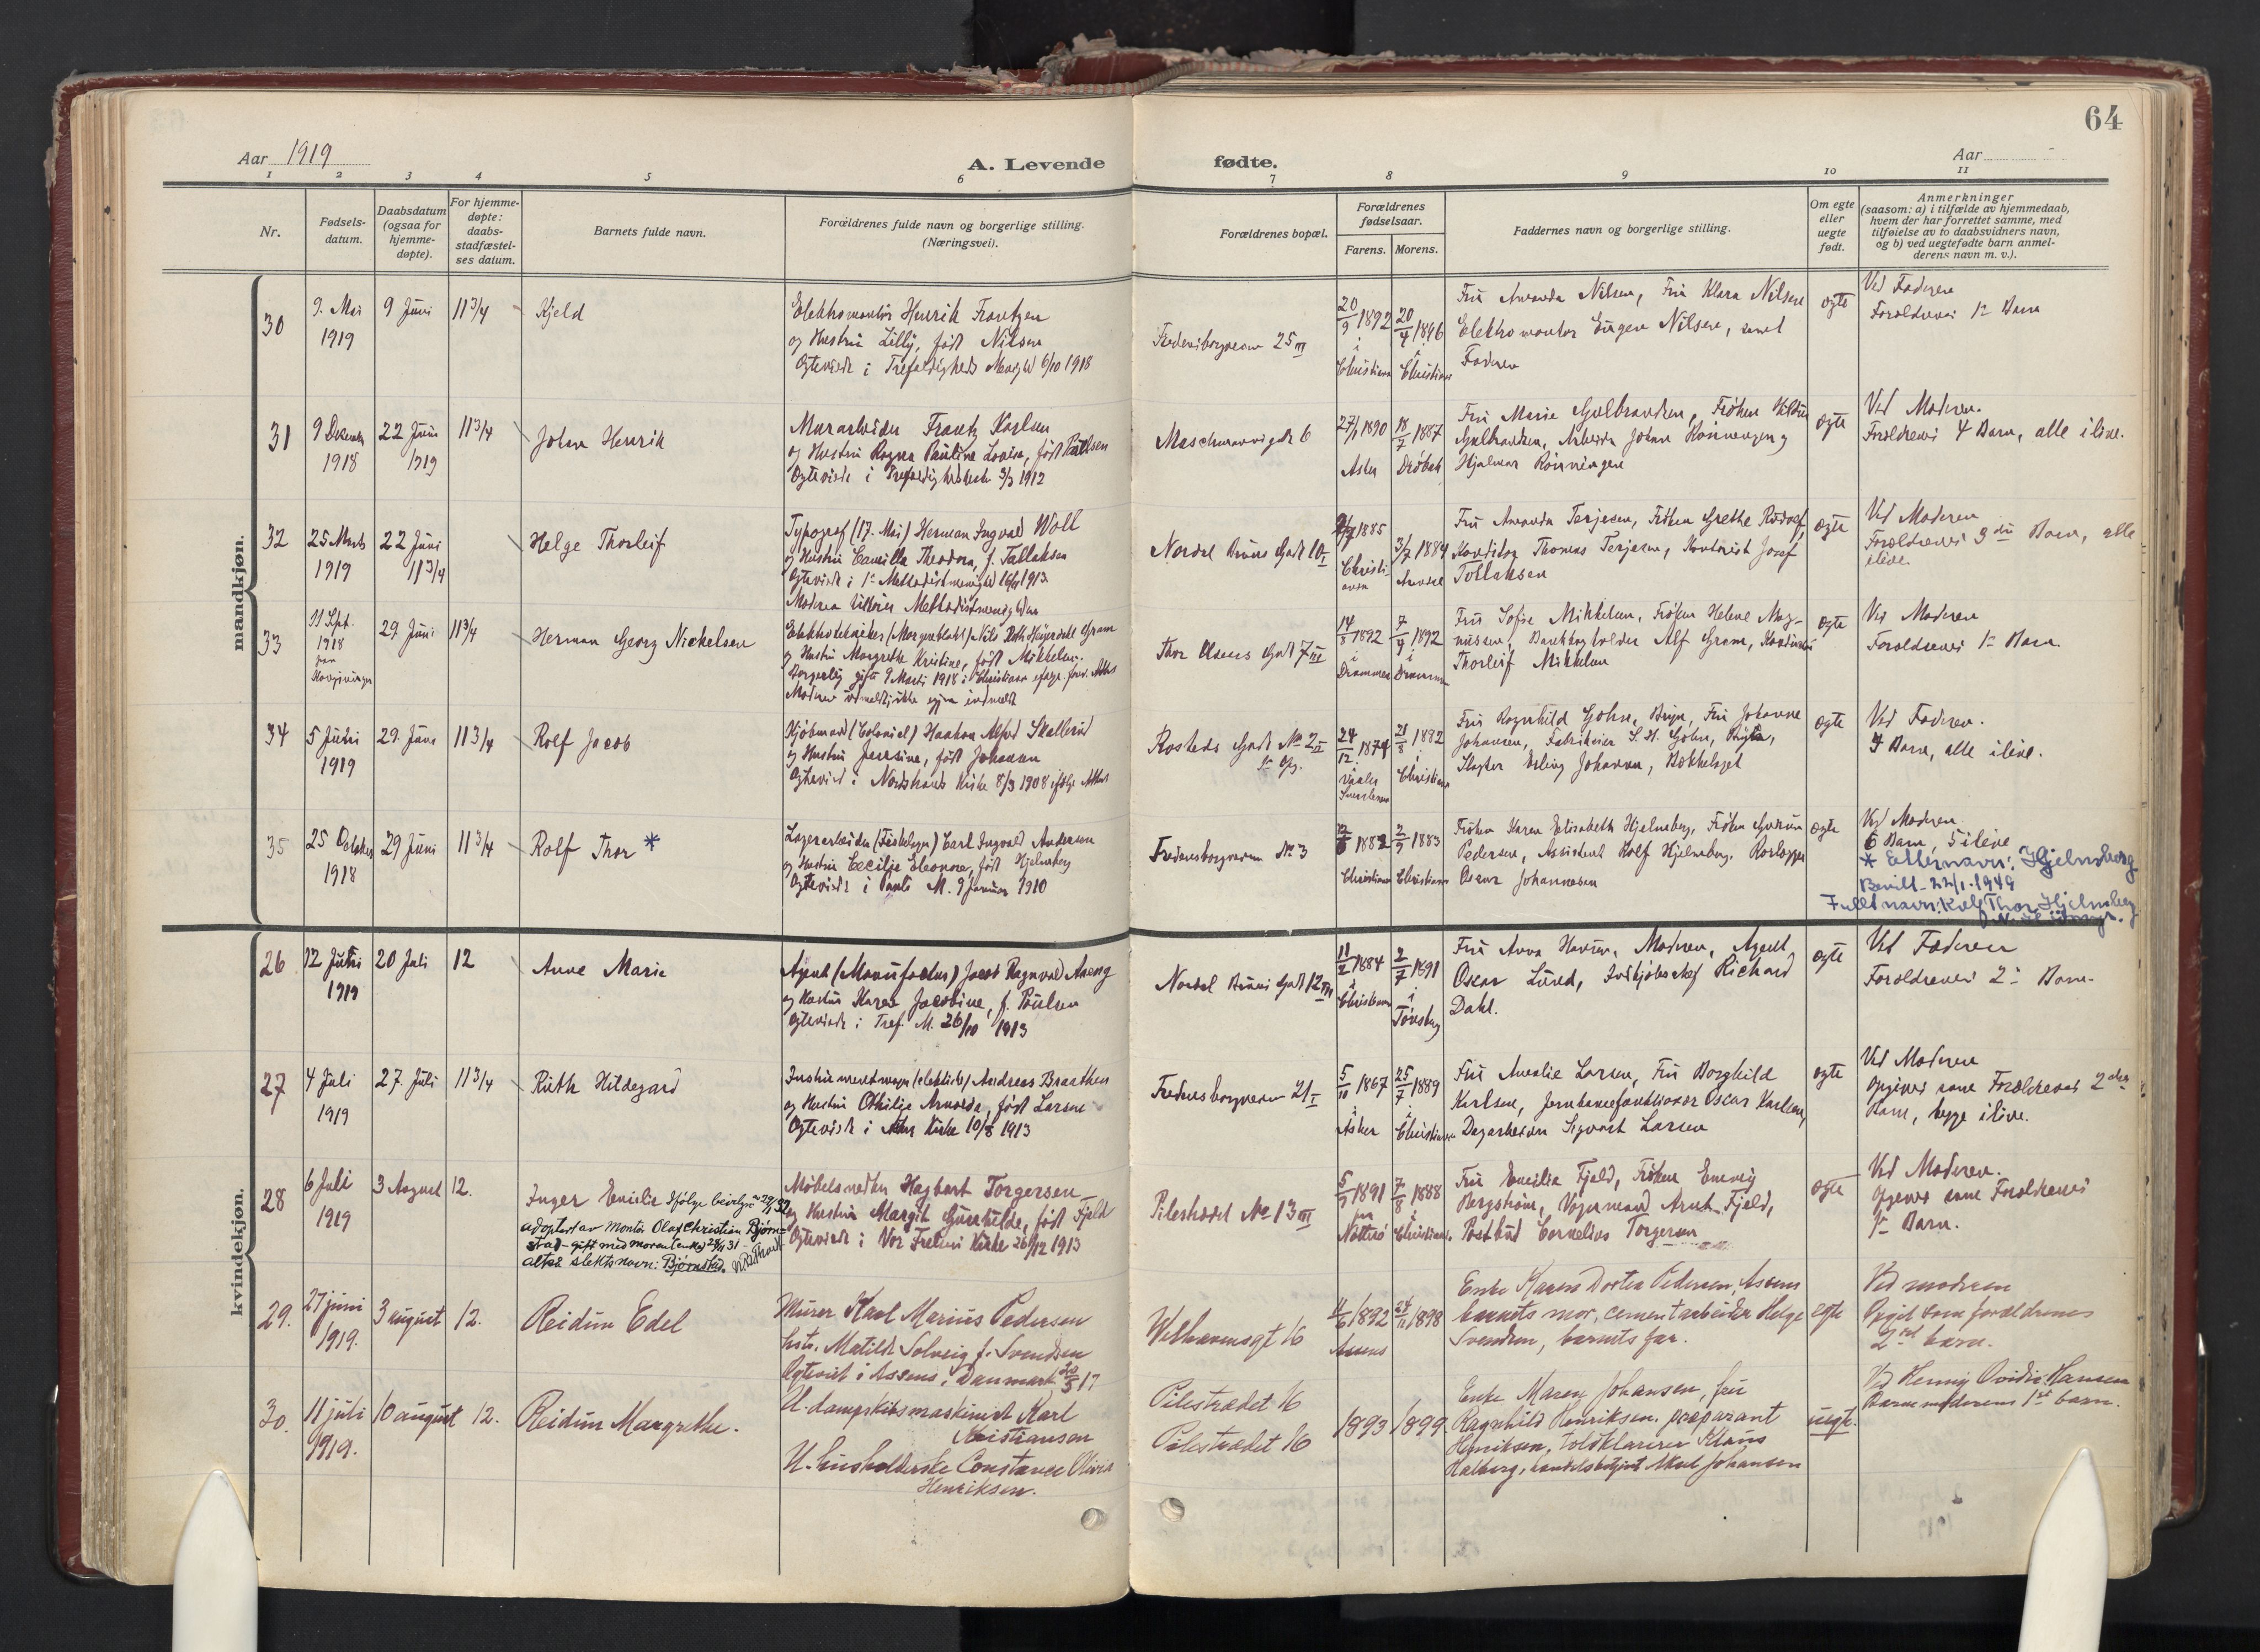 64
Aar 1919
A. Levende
fødte.
Aar
1 2 3 4 5 6 7 8 9 10 11
Nr.
Fødsels-
datum.
Daabsdatum
(ogsaa for
hjemme-
døpte).
For hjemme-
døpte:
daabs-
stadfæstel-
ses datum.
Barnets fulde navn.
Forældrenes fulde navn og borgerlige stilling.
(Næringsvei).
Forældrenes bopæl.
Forældrenes
fødselsaar.
Farens. Morens.
Faddernes navn og borgerlige stilling.
Om egte
eller
uegte
født.
Anmerkninger
(saasom: a) i tilfælde av hjemmedaab,
hvem der har forrettet samme, med
tilføielse av to daabsvidners navn,
og b) ved uegtefødte barn anmel-
derens navn m. v.).
mandkjøn.
30
9. Mai
1919
9 Juni
11 3/4
Kjeld
Elektromontör Henrik Frantzen
og Hustru Lilly, født Nilsen
Ægteviede i Trefoldigheds Menighed 6/10 1918
Fredensborgveien 25 III
20/9 1892
i
Christiania
20/4 1896
i
Christiania
Fru Amanda Nilsen, Fru Klara Nilsen
Elektromontør Eugen Nilsen, samt
Faderen
ægte
Ved Faderen
Forældrenes 1ste Barn
31
9 Desember
1918
22 Juni
1919
11 3/4
Johan Henrik
Murarbeider Frantz Karlsen
og Hustru Ragna Pauline Lovise, født Paulsen
Ægteviede i Trefoldighedskirke 3/3 1912
6
27/1 1890
Asker
18/7 1887
Drøbak
Fru Marie Gulbrandsen, Frøken
Gulbrandsen, Arbeider Johan Rønningen og
Hjalmar Rønningen
ægte
Ved Moderen.
Forældrenes 4 Barn, alle ilive.
32
25 Marts
1919
22 Juni
11 3/4
Helge Thorleif
Typograf (17. Mai) Herman Ingvald Woll
og Hustru Camilla Theodora, f. Tallaksen
Ægteviede i 1ste Methodistmenighed 1913.
Moderen tilhører Methodistmenigheden
Nordre Bruns Gade 10 I
1885
Christi-
ania
3/7 1884
Arendal
Fru Amanda Terjesen, Frøken Grethe Rudolf,
Konditor Thomas Terjesen, Kontorist Josef
Tollaksen
ægte
Ved Moderen
Forældrenes 3die Barn, alle
ilive.
33
11 Sept.
1918
paa
Kongsvinger
29 Juni
11 3/4
Herman Georg Nickelsen
Elektrotekniker (Morgenbladet) Nils Heyerdahl Gram
og Hustru Margrethe Kristine, født Mikkelsen.
Borgerlig gifte 9 Marts 1918 i Christiania ifølge frem. Attest
Moderen utmeldt, ikke igjen indmeldt
Thor Olsens Gade 7 III
14/8 1892
i
Drammen
7/9 1892
i
Drammen
Fru Sofie Mikkelsen, Frøken Helene Mag-
nussen, Bankbogholder Alf Gram,
Thorleif Mikkelsen
ægte
Ved Moderen
Forældrenes 1ste Barn.
34
5 Juni
1919
29. Juni
11 3/4
Rolf Jacob
Kjøbmand (Colonial) Haakon Alfred Skallerud
og Hustru Jensine, født Johansen
Ægteviede i Nordstrands Kirke 8/3 1908 ifølge Attest
Rosteds Gade No 2 II
24/12 1879
i
Vaaler
Smaalenene
21/8 1882
i
Christiania
Fru Ragnhild Gjohn, Bryn, Fru Johanne
Johansen, Fabrikeier S. H. Gjohn, Bryn,
Slagter Erling Johansen, Bækkelaget
ægte
Ved Faderen.
7 Barn, alle ilive.
35
25 Oktober
1918
29 Juni
11 3/4
Rolf Thor *
Lagerarbeider Carl Ingvald Andersen
og Hustru Cecilie Eleonore, født Hjelmsberg
Ægteviede i Pauls M. 9 Januar 1910
Fredensborgveien No 3
1882
Christiania
2/5 1883
Christiania
Frøken Karen Elisabeth Hjelmsberg, Frøken Gudrun
Pedersen, Assistent Rolf Hjelmsberg,
Oscar Johannesen
ægte
Ved Moderen.
6 Barn, 5 ilive
* Etternavn: Hjelmsberg
Bevill. 22/1-1949
Fullt navn: Rolf Thor Hjelmsberg
kvindekjøn.
26
12 Juni
1919
20 Juli
12
Anne Marie
Agent (Manufactur) Jacob Ragnvald Aaeng
og Hustru Karen Jacobine, f. Poulsen
Ægteviede i Tref. M. 26/10 1913
Nordal Bruns Gade 12 III
11/2 1884
i
Christiania
2/7 1891
i
Tønsberg
Fru Anna Hansen, Moderen, Agent
Oscar Lund, Indkjøbschef Richard
Dahl.
ægte
Ved Faderen
Forældrenes 2det Barn.
27
4 Juli
1919
27. Juli
11 3/4
Ruth Hildegard
Instrumentmager (elektrisk) Andreas Braathen
og Hustru Othilie Arnolda, født Larsen
Ægteviede i Kirke 10/8 1913
Fredensborgveien 21 I
5/10 1867
i
Asker
25/7 1889
i
Christiania
Fru Amalie Larsen, Fru Borghild
Karlsen, Jernbanefunktionær Oscar Karlsen,
Dagarbeider Sigvart Larsen
ægte
Ved Moderen
Opgives som Forældrenes 2det
Barn, begge ilive.
28
6 Juli
1919
3 August
12.
Inger Emilie Ifølge bevilgn. av 29/1 32
adoptert av montör Olaf Christian Bjørn-
stad - gift med moren (enke) 28/11 31
altså slektsnavn: Bjørnstad.
Møbelsnedker Hagbart Torgersen
og Hustru Margit Gunhilde, født Fjeld
Ægteviede i Vor Frelsers Kirke 26/12 1913
Pilestrædet No 13 III
5/9 1891
paa
Nøtterø
7/8 1888
i
Christiania.
Fru Emilie Fjeld, Frøken Emmy
Bergstrøm, Vognmand Arnt Fjeld,
Postbud Cornelius Torgersen
ægte
Ved Moderen.
Opgives som Forældrenes
1ste Barn.
29.
27 juni
1919.
3 august
12.
Reidun Edel
Murer Karl Marius Pedersen
hstr. Matilde Solveig f. Svendsen
Ægteviet i Assens, Danmark 20/5 17
Welhavensgt 16
4/6 1892
Assens
24/11 1898
Enke Karen Dortea Pedersen, Assens
barnets mor, cementarbeider Helge
Svendsen, barnets far.
egte
Ved moderen
Opgit som forældrenes
2net barn.
30.
11 juli
1919.
10 august
12.
Reidun Margrethe.
U. dampskibsmaskinist Karl
Kristiansen
U. husholderske Constance Olivia
Henriksen.
Pilestrædet 16
Pilestrædet 16
1893
1899
Enke Maren Johansen, fru
Ragnhild Henriksen, præparant
Henriksen, toldklarerer Klaus
Halberg, handelsbetjent Johansen
uegte.
Ved Henny Ovidia Hansen
Barnemoderens 1ste barn.